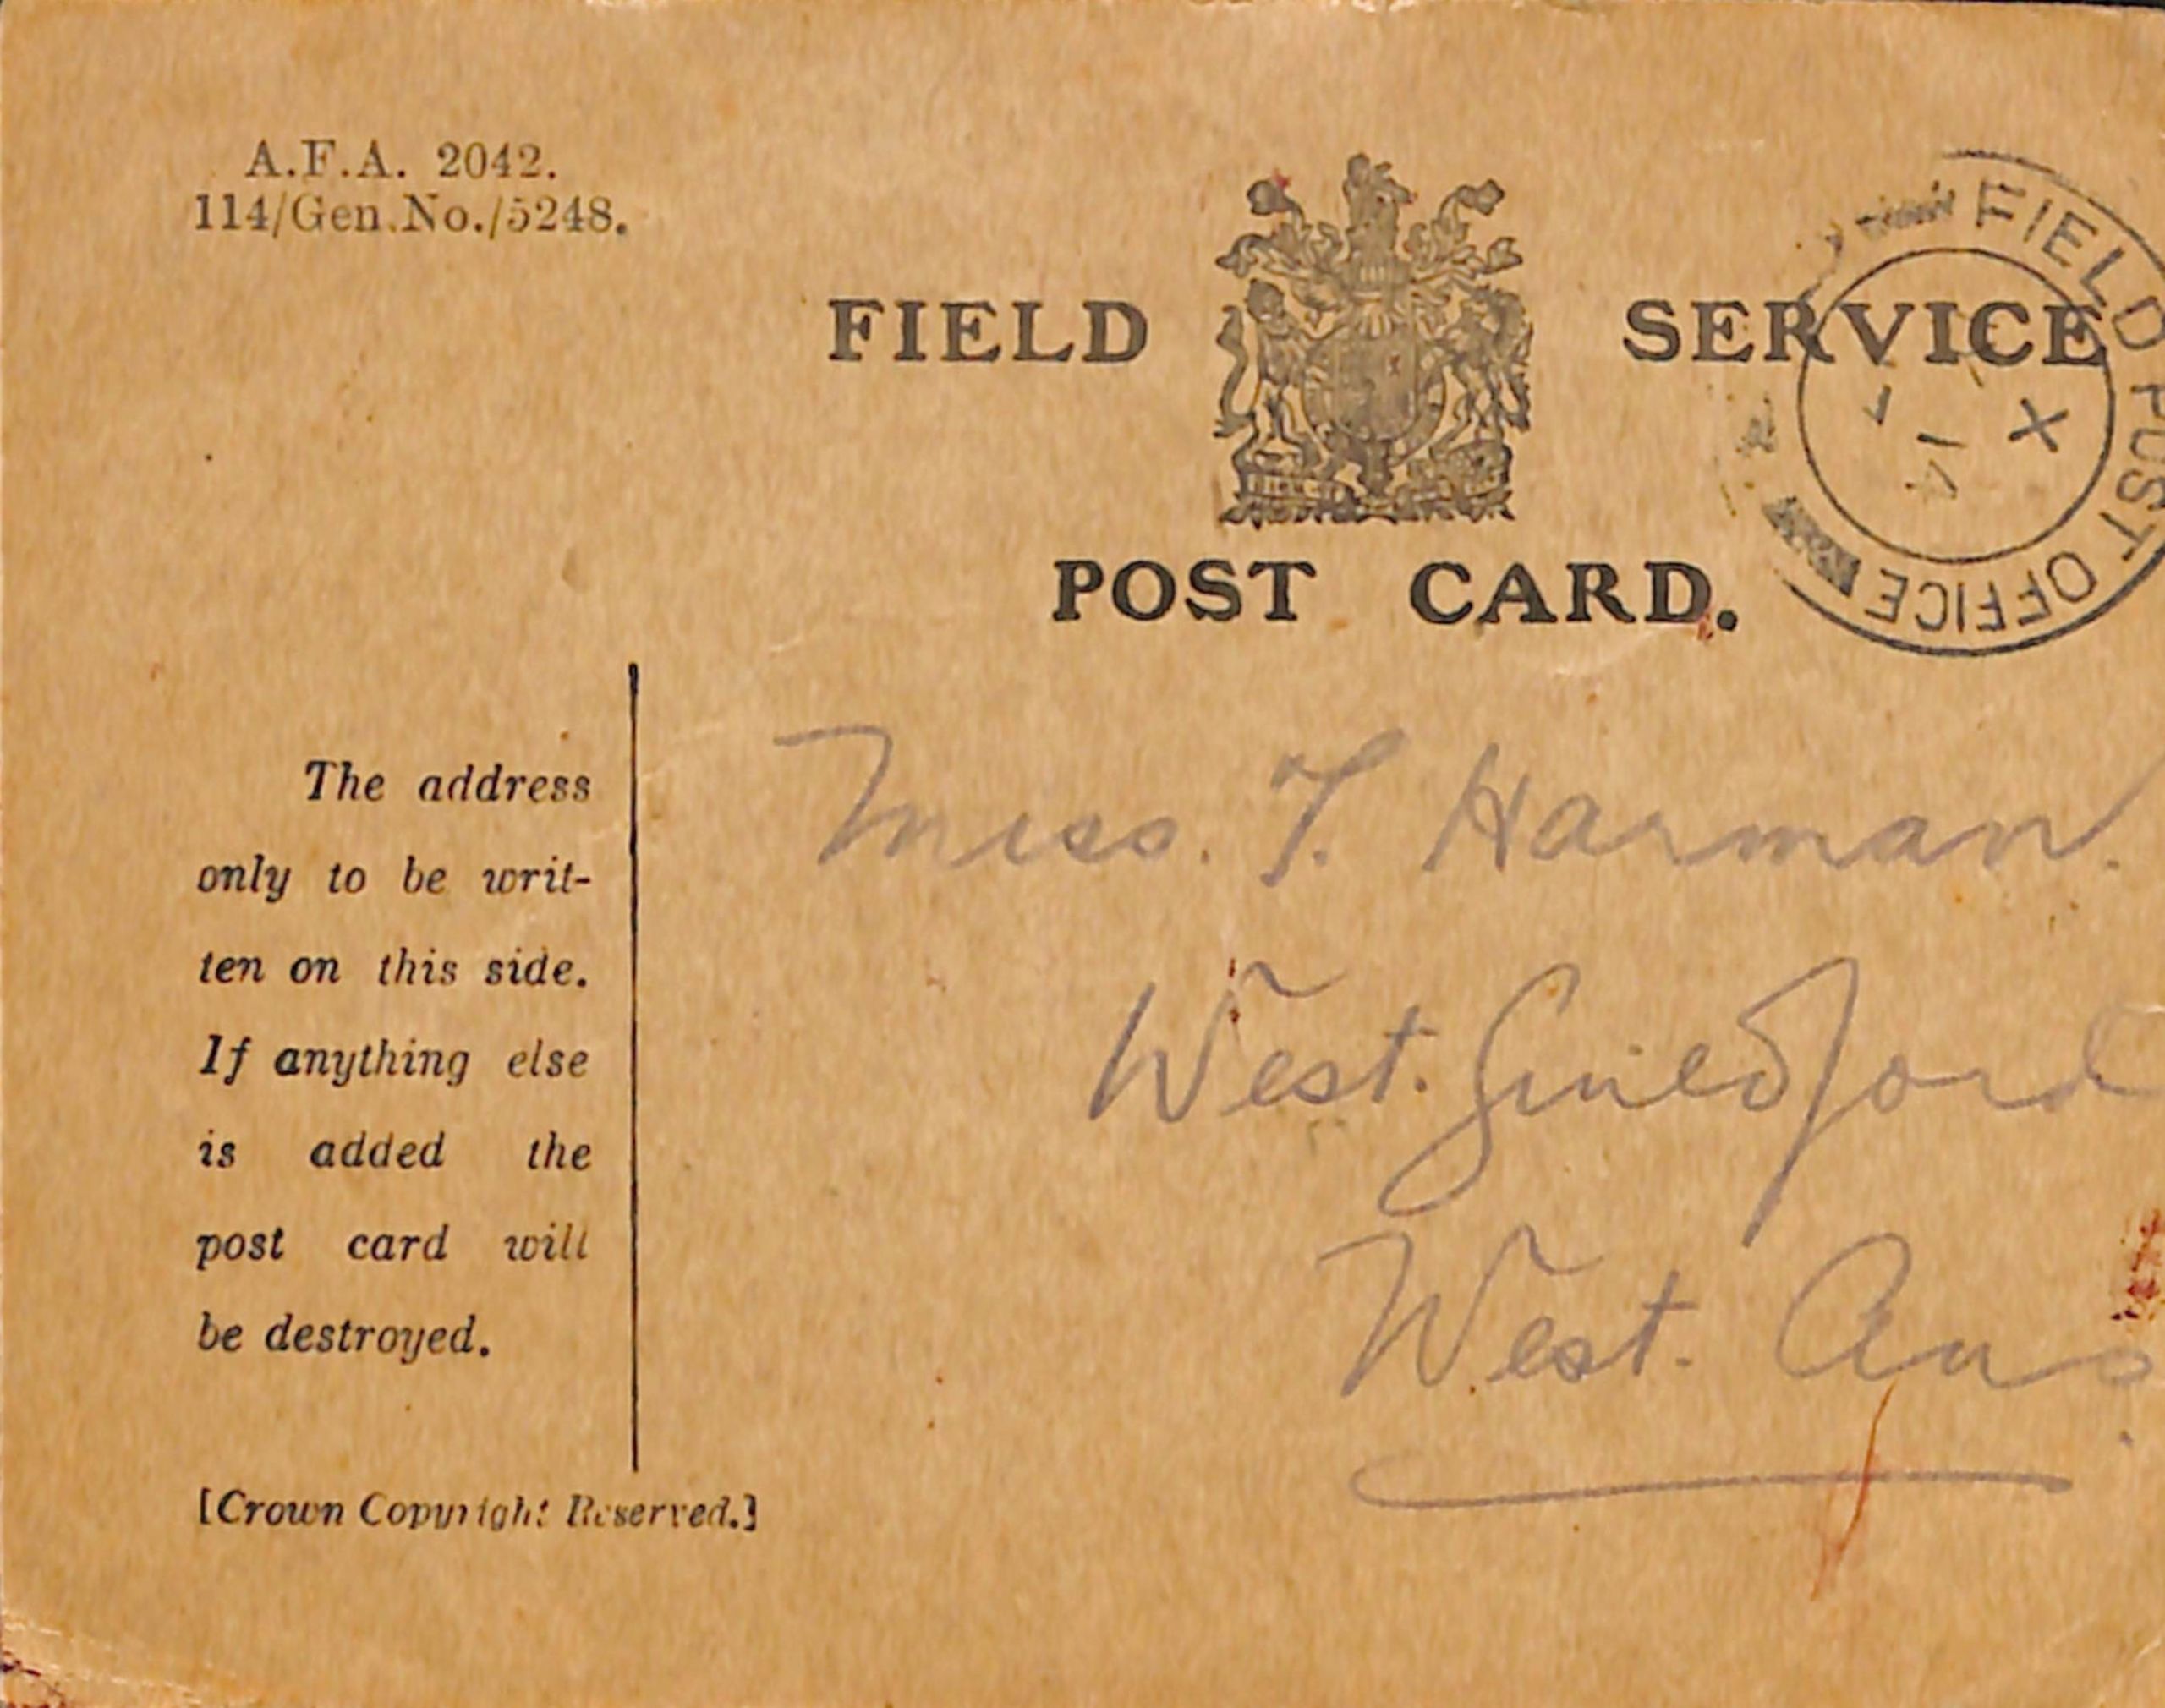 A.F.A. 2042.
114/Gen.No./5248.
FIELD SERVICE
POST CARD.
FIELD POST OFFICE
X
14
The address
only to be writ-
ten on this side.
If anything else
is added the
post card will
be destroyed.
[Crown Copyright Reserved.]
Miss. T. Harman.
West. Guildford
West. Aus.